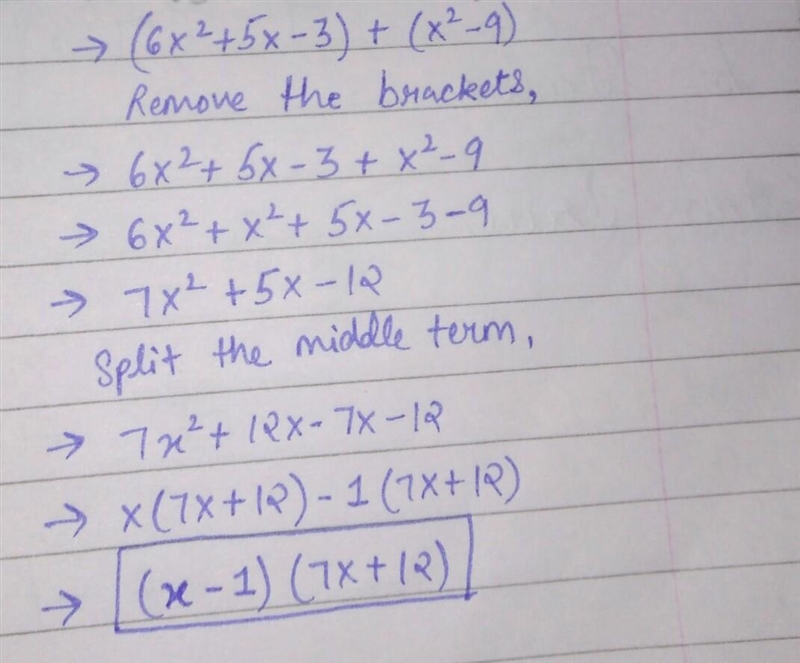 → (6x²+5x-3) + (x²-9)
Remove the brackets,
→ 6x²+5x-3+x²-9
→ 6x²+x²+5x-3-9
→ 7x²+5x-12
Split the middle term,
→ 7x²+12x-7x-12
→ x(7x+12)-1(7x+12)
→ (x-1)(7x+12)